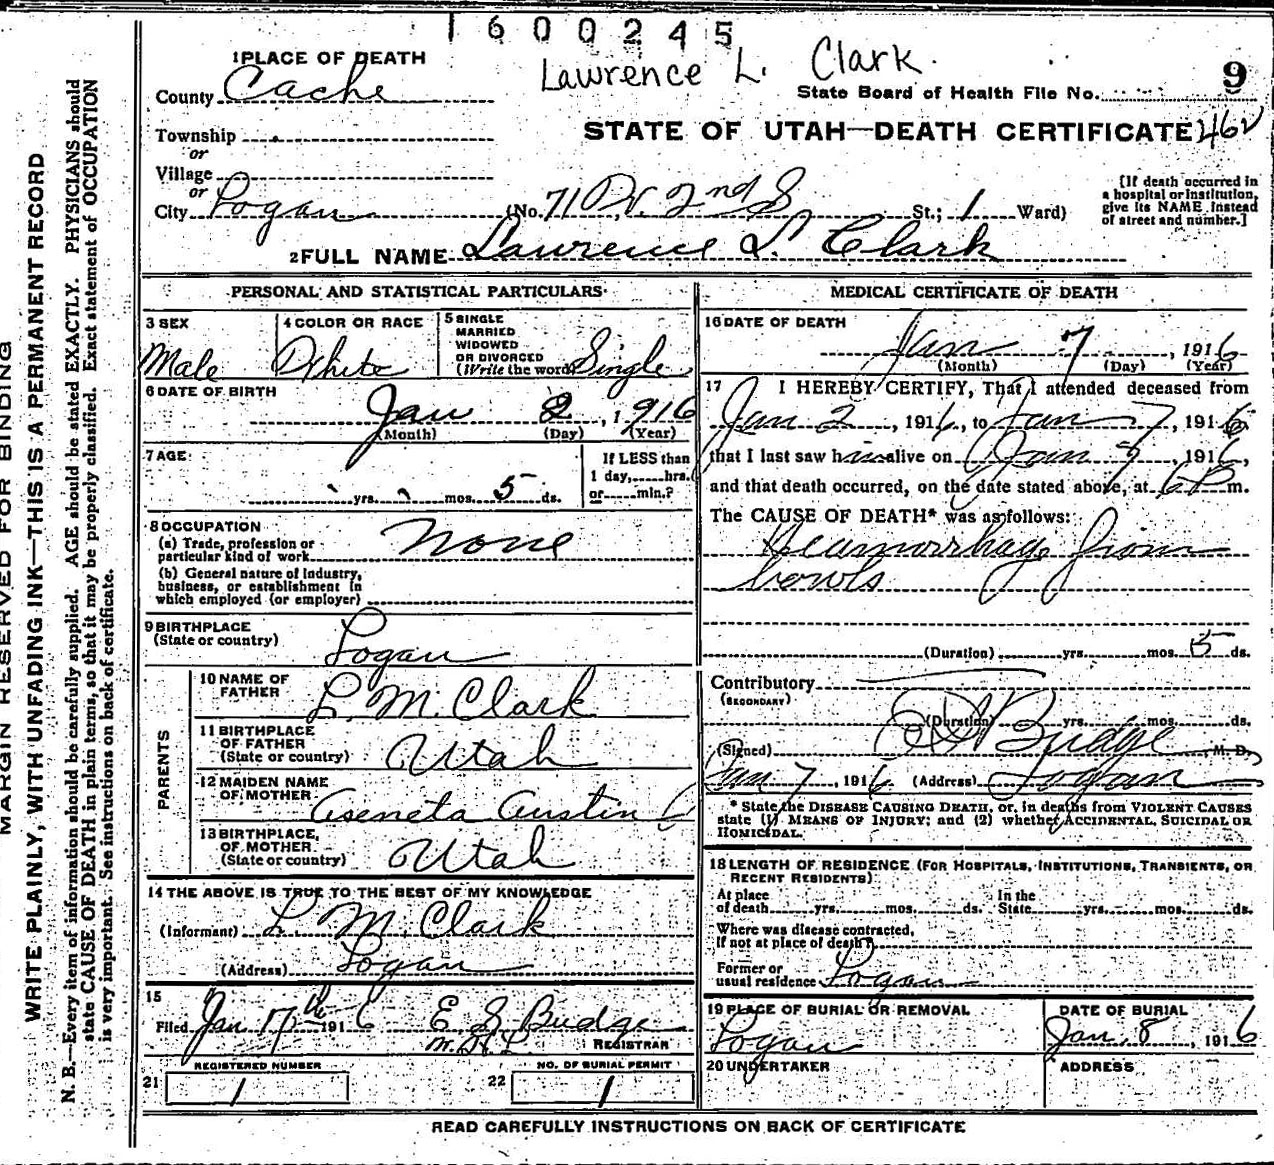 1600245
Lawrence L. Clark
1 PLACE OF DEATH
9
County Cache
State Board of Health File No.
Township
STATE OF UTAH—DEATH CERTIFICATE 462
or
Village
or
City Logan (No. 71 W. 2nd S St.; 1 Ward)
[If death occurred in
a hospital or institution,
give its NAME instead
of street and number.]
2 FULL NAME Lawrence L Clark
PERSONAL AND STATISTICAL PARTICULARS
3 SEX
Male
4 COLOR OR RACE
White
5 SINGLE
MARRIED
WIDOWED
OR DIVORCED
(Write the word) Single
6 DATE OF BIRTH
Jan 2, 1916
(Month) (Day) (Year)
7 AGE
yrs. mos. 5 ds.
If LESS than
1 day, hrs.
or min.?
8 OCCUPATION
(a) Trade, profession or
particular kind of work None
(b) General nature of industry,
business, or establishment in
which employed (or employer)
9 BIRTHPLACE
(State or country) Logan
PARENTS
10 NAME OF
FATHER L. M. Clark
11 BIRTHPLACE
OF FATHER
(State or country) Utah
12 MAIDEN NAME
OF MOTHER Aseneta Austin
13 BIRTHPLACE
OF MOTHER
(State or country) Utah
14 THE ABOVE IS TRUE TO THE BEST OF MY KNOWLEDGE
(Informant) L. M. Clark
(Address) Logan
15
Filed Jan 17th 1916 E S Budge
REGISTRAR
REGISTERED NUMBER
21 1
NO. OF BURIAL PERMIT
22 1
MEDICAL CERTIFICATE OF DEATH
16 DATE OF DEATH
Jan 7, 1916
(Month) (Day) (Year)
17 I HEREBY CERTIFY, That I attended deceased from
Jan 2, 1916, to Jan 7, 1916
that I last saw him alive on Jan 7, 1916,
and that death occurred, on the date stated above, at 6 P m.
The CAUSE OF DEATH* was as follows:
Heamorrhage from
bowls
(Duration) yrs. mos. 5 ds.
Contributory
(SECONDARY)
(Duration) yrs. mos. ds.
(Signed) Budge M. D.
Jan 7, 1916 (Address) Logan
* State the DISEASE CAUSING DEATH, or, in deaths from VIOLENT CAUSES
state (1) MEANS OF INJURY; and (2) whether ACCIDENTAL, SUICIDAL OR
HOMICIDAL.
18 LENGTH OF RESIDENCE (FOR HOSPITALS, INSTITUTIONS, TRANSIENTS, OR
RECENT RESIDENTS)
At place
of death yrs. mos. ds.
In the
State yrs. mos. ds.
Where was disease contracted,
if not at place of death?
Former or
usual residence Logan
19 PLACE OF BURIAL OR REMOVAL
Logan
DATE OF BURIAL
Jan. 8, 1916
20 UNDERTAKER
ADDRESS
READ CAREFULLY INSTRUCTIONS ON BACK OF CERTIFICATE
MARGIN RESERVED FOR BINDING
WRITE PLAINLY, WITH UNFADING INK—THIS IS A PERMANENT RECORD
N. B.—Every item of information should be carefully supplied. AGE should be stated EXACTLY. PHYSICIANS should
state CAUSE OF DEATH in plain terms, so that it may be properly classified. Exact statement of OCCUPATION
is very important. See instructions on back of certificate.